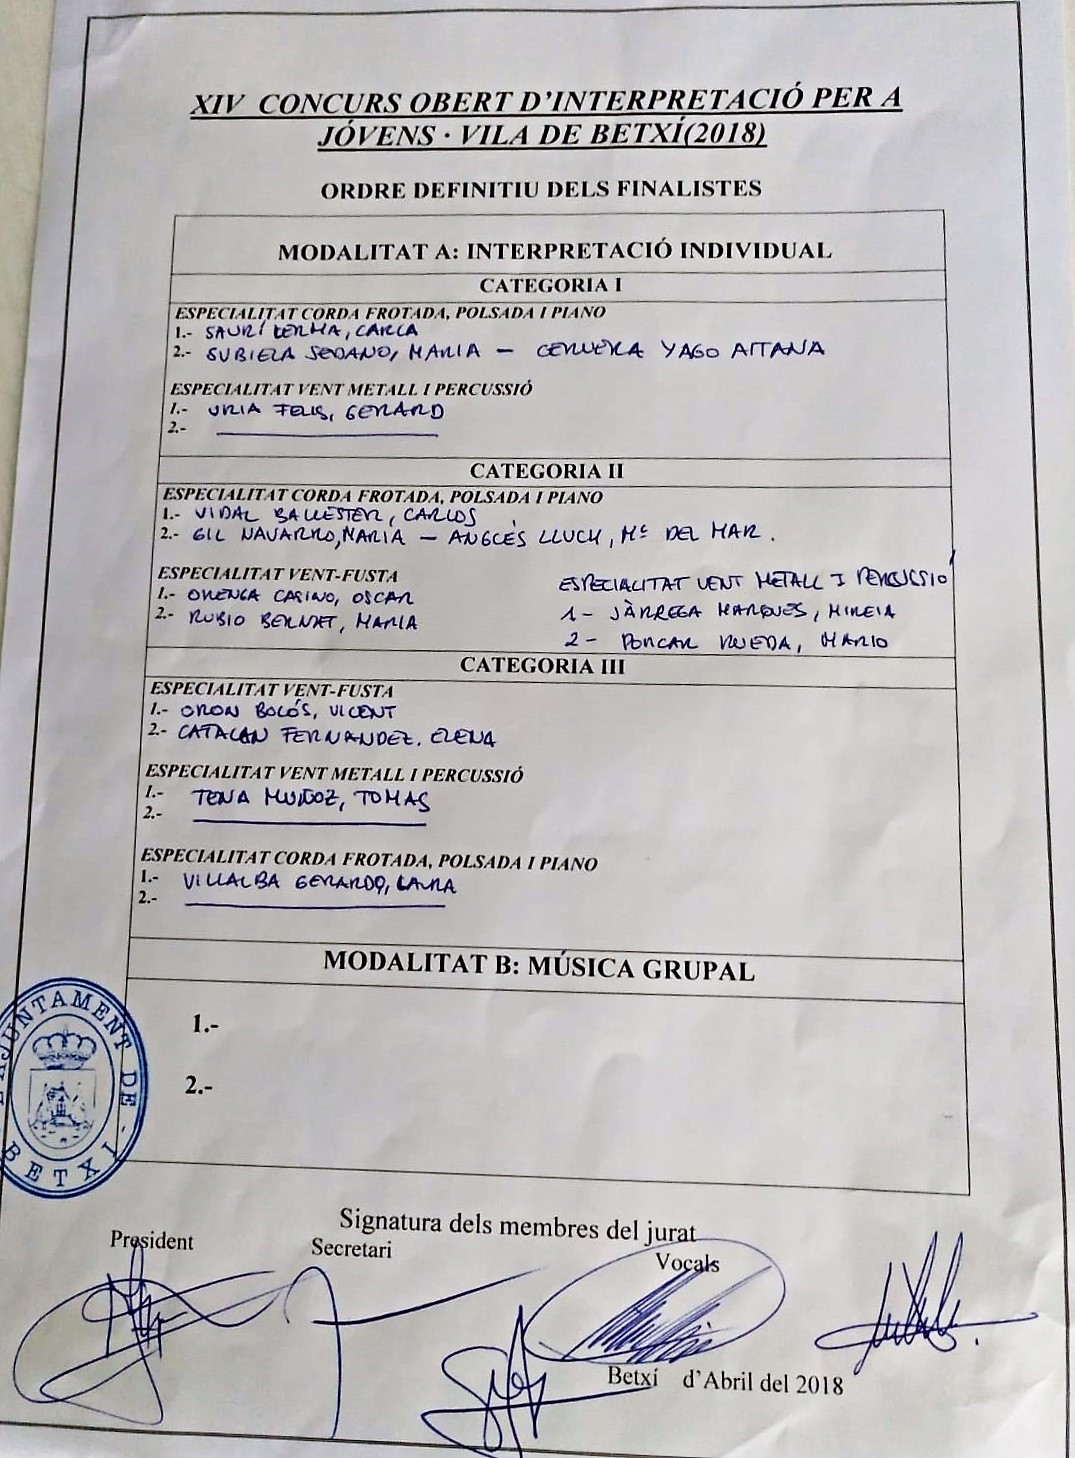 XIV CONCURS OBERT D'INTERPRETACIÓ PER A
JÓVENS · VILA DE BETXÍ(2018)
ORDRE DEFINITIU DELS FINALISTES
MODALITAT A: INTERPRETACIÓ INDIVIDUAL
CATEGORIA I
ESPECIALITAT CORDA FROTADA, POLSADA I PIANO
1.- SAURÍ LERMA, CARLA
2.- SUBIELA SEDANO, MARIA — CERVERA YAGO AITANA
ESPECIALITAT VENT METALL I PERCUSSIÓ
1.- URIA FELIS, GERARD
2.-
CATEGORIA II
ESPECIALITAT CORDA FROTADA, POLSADA I PIANO
1.- VIDAL BALLESTER, CARLOS
2.- GIL NAVARRO, MARIA — ANGLÉS LLUCH, Mª DEL MAR.
ESPECIALITAT VENT-FUSTA
1.- ORENGA CASINO, OSCAR
2.- RUBIO BERNAT, MARIA
ESPECIALITAT VENT METALL I PERCUSSIO
1- JÀRREGA MARQUES, MIREIA
2- PORCAR RUEDA, MARIO
CATEGORIA III
ESPECIALITAT VENT-FUSTA
1.- ORON BOLÓS, VICENT
2.- CATALAN FERNANDEZ. ELENA
ESPECIALITAT VENT METALL I PERCUSSIÓ
1.- TENA MUÑOZ, TOMAS
2.-
ESPECIALITAT CORDA FROTADA, POLSADA I PIANO
1.- VILLALBA GERARDO, LAURA
2.-
MODALITAT B: MÚSICA GRUPAL
1.-
2.-
AJUNTAMENT DE
BETXI
Signatura dels membres del jurat
President Secretari Vocals
Betxí d'Abril del 2018